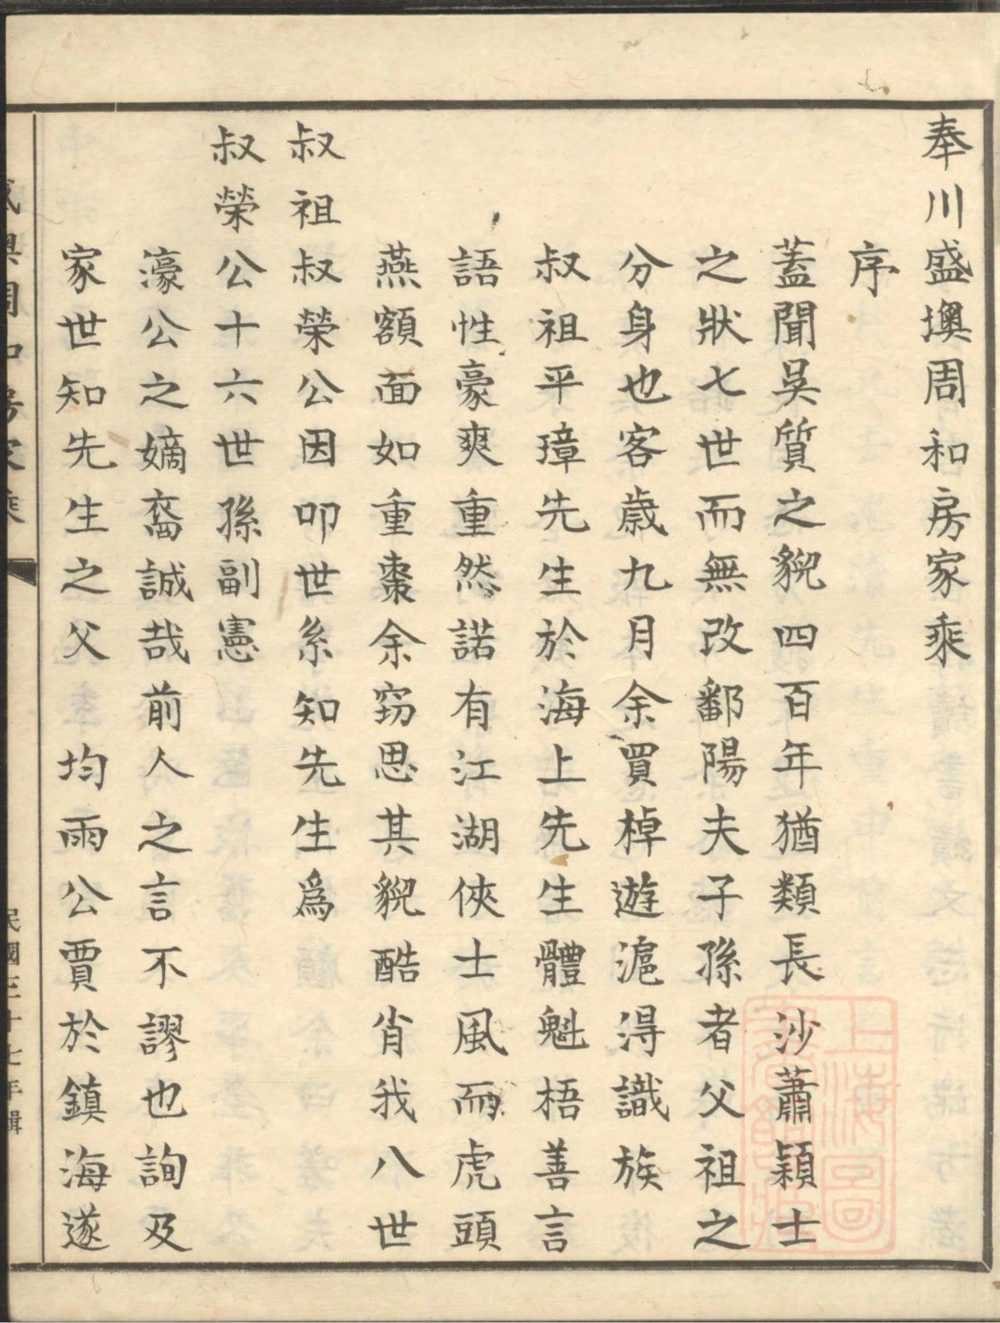 奉川盛墺周和房家乘
序
蓋聞吳質之貌四百年猶類長沙蕭穎士
之狀七世而無改鄱陽夫子孫者父祖之
分身也客歲九月余買棹遊滬得識族
叔祖平璋先生於海上先生體魁梧善言
語性豪爽重然諾有江湖俠士風而虎頭
燕額面如重棗余窃思其貌酷肖我八世
叔祖叔榮公因叩世系知先生爲
叔榮公十六世孫副憲
濠公之嫡裔誠哉前人之言不謬也詢及
家世知先生之父 均雨公賈於鎮海遂
民國三十七年輯
上海圖